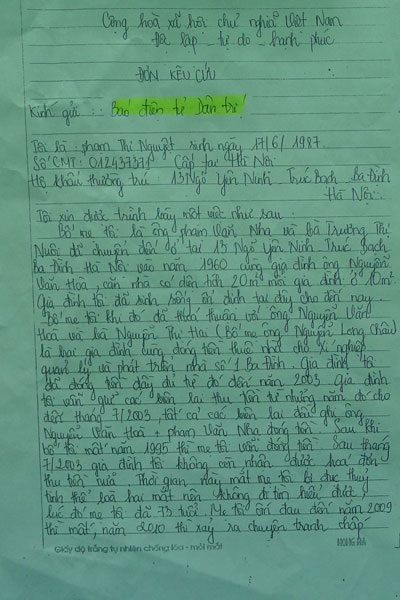 Cộng hoà xã hội chủ nghĩa Việt Nam
Độc lập - tự do - hạnh phúc
ĐƠN KÊU CỨU
Kính gửi : Báo điện tử Dân trí
Tôi là : phạm Thị Nguyệt sinh ngày 17/6/1987
Số CMT: 012437371 Cấp tại Hà Nội
Hộ khẩu thường trú : 13 Ngõ Yên Ninh - Trúc Bạch - Ba Đình
Hà Nội.
Tôi xin được trình bày một việc như sau
Bố mẹ tôi là ông phạm Văn Nhạ và bà Trương Thị
Nuôi đã chuyển đến ở tại 13 Ngõ Yên Ninh Trúc Bạch
Ba Đình Hà Nội vào năm 1960 cùng gia đình ông Nguyễn
Văn Hoà, căn nhà có diện tích 20m² mỗi gia đình ở 10m².
Gia đình tôi đã sinh sống ổn định tại đây cho đến nay.
Bố mẹ tôi khi đó đã thoả thuận với ông Nguyễn Văn
Hoà và bà Nguyễn Thị Hai (Bố mẹ ông Nguyễn Long Châu)
là hai gia đình cùng đóng tiền thuê nhà cho xí nghiệp
quản lý và phát triển nhà số 1 Ba Đình. Gia đình tôi
đã đóng tiền đầy đủ từ đó đến năm 2003. Gia đình
tôi vẫn giữ các biên lai thu tiền từ những năm đó cho
đến tháng 7/2003, tất cả các biên lai đều ghi ông
Nguyễn Văn Hoà + phạm Văn Nhạ đóng tiền. Sau khi
bố tôi mất năm 1995 thì mẹ tôi vẫn đóng tiền. Sau tháng
7/2003 gia đình tôi không còn nhận được hoá đơn
thu tiền nữa. Thời gian này mắt mẹ tôi bị đục thuỷ
tinh thể loà hai mắt nên không đi tìm hiểu được,
lúc đó mẹ tôi đã 73 tuổi. Mẹ tôi ốm đau đến năm 2009
thì mất, năm 2010 thì xảy ra chuyện tranh chấp
Giấy độ trắng tự nhiên chống lóa - mỏi mắt
HONG HA